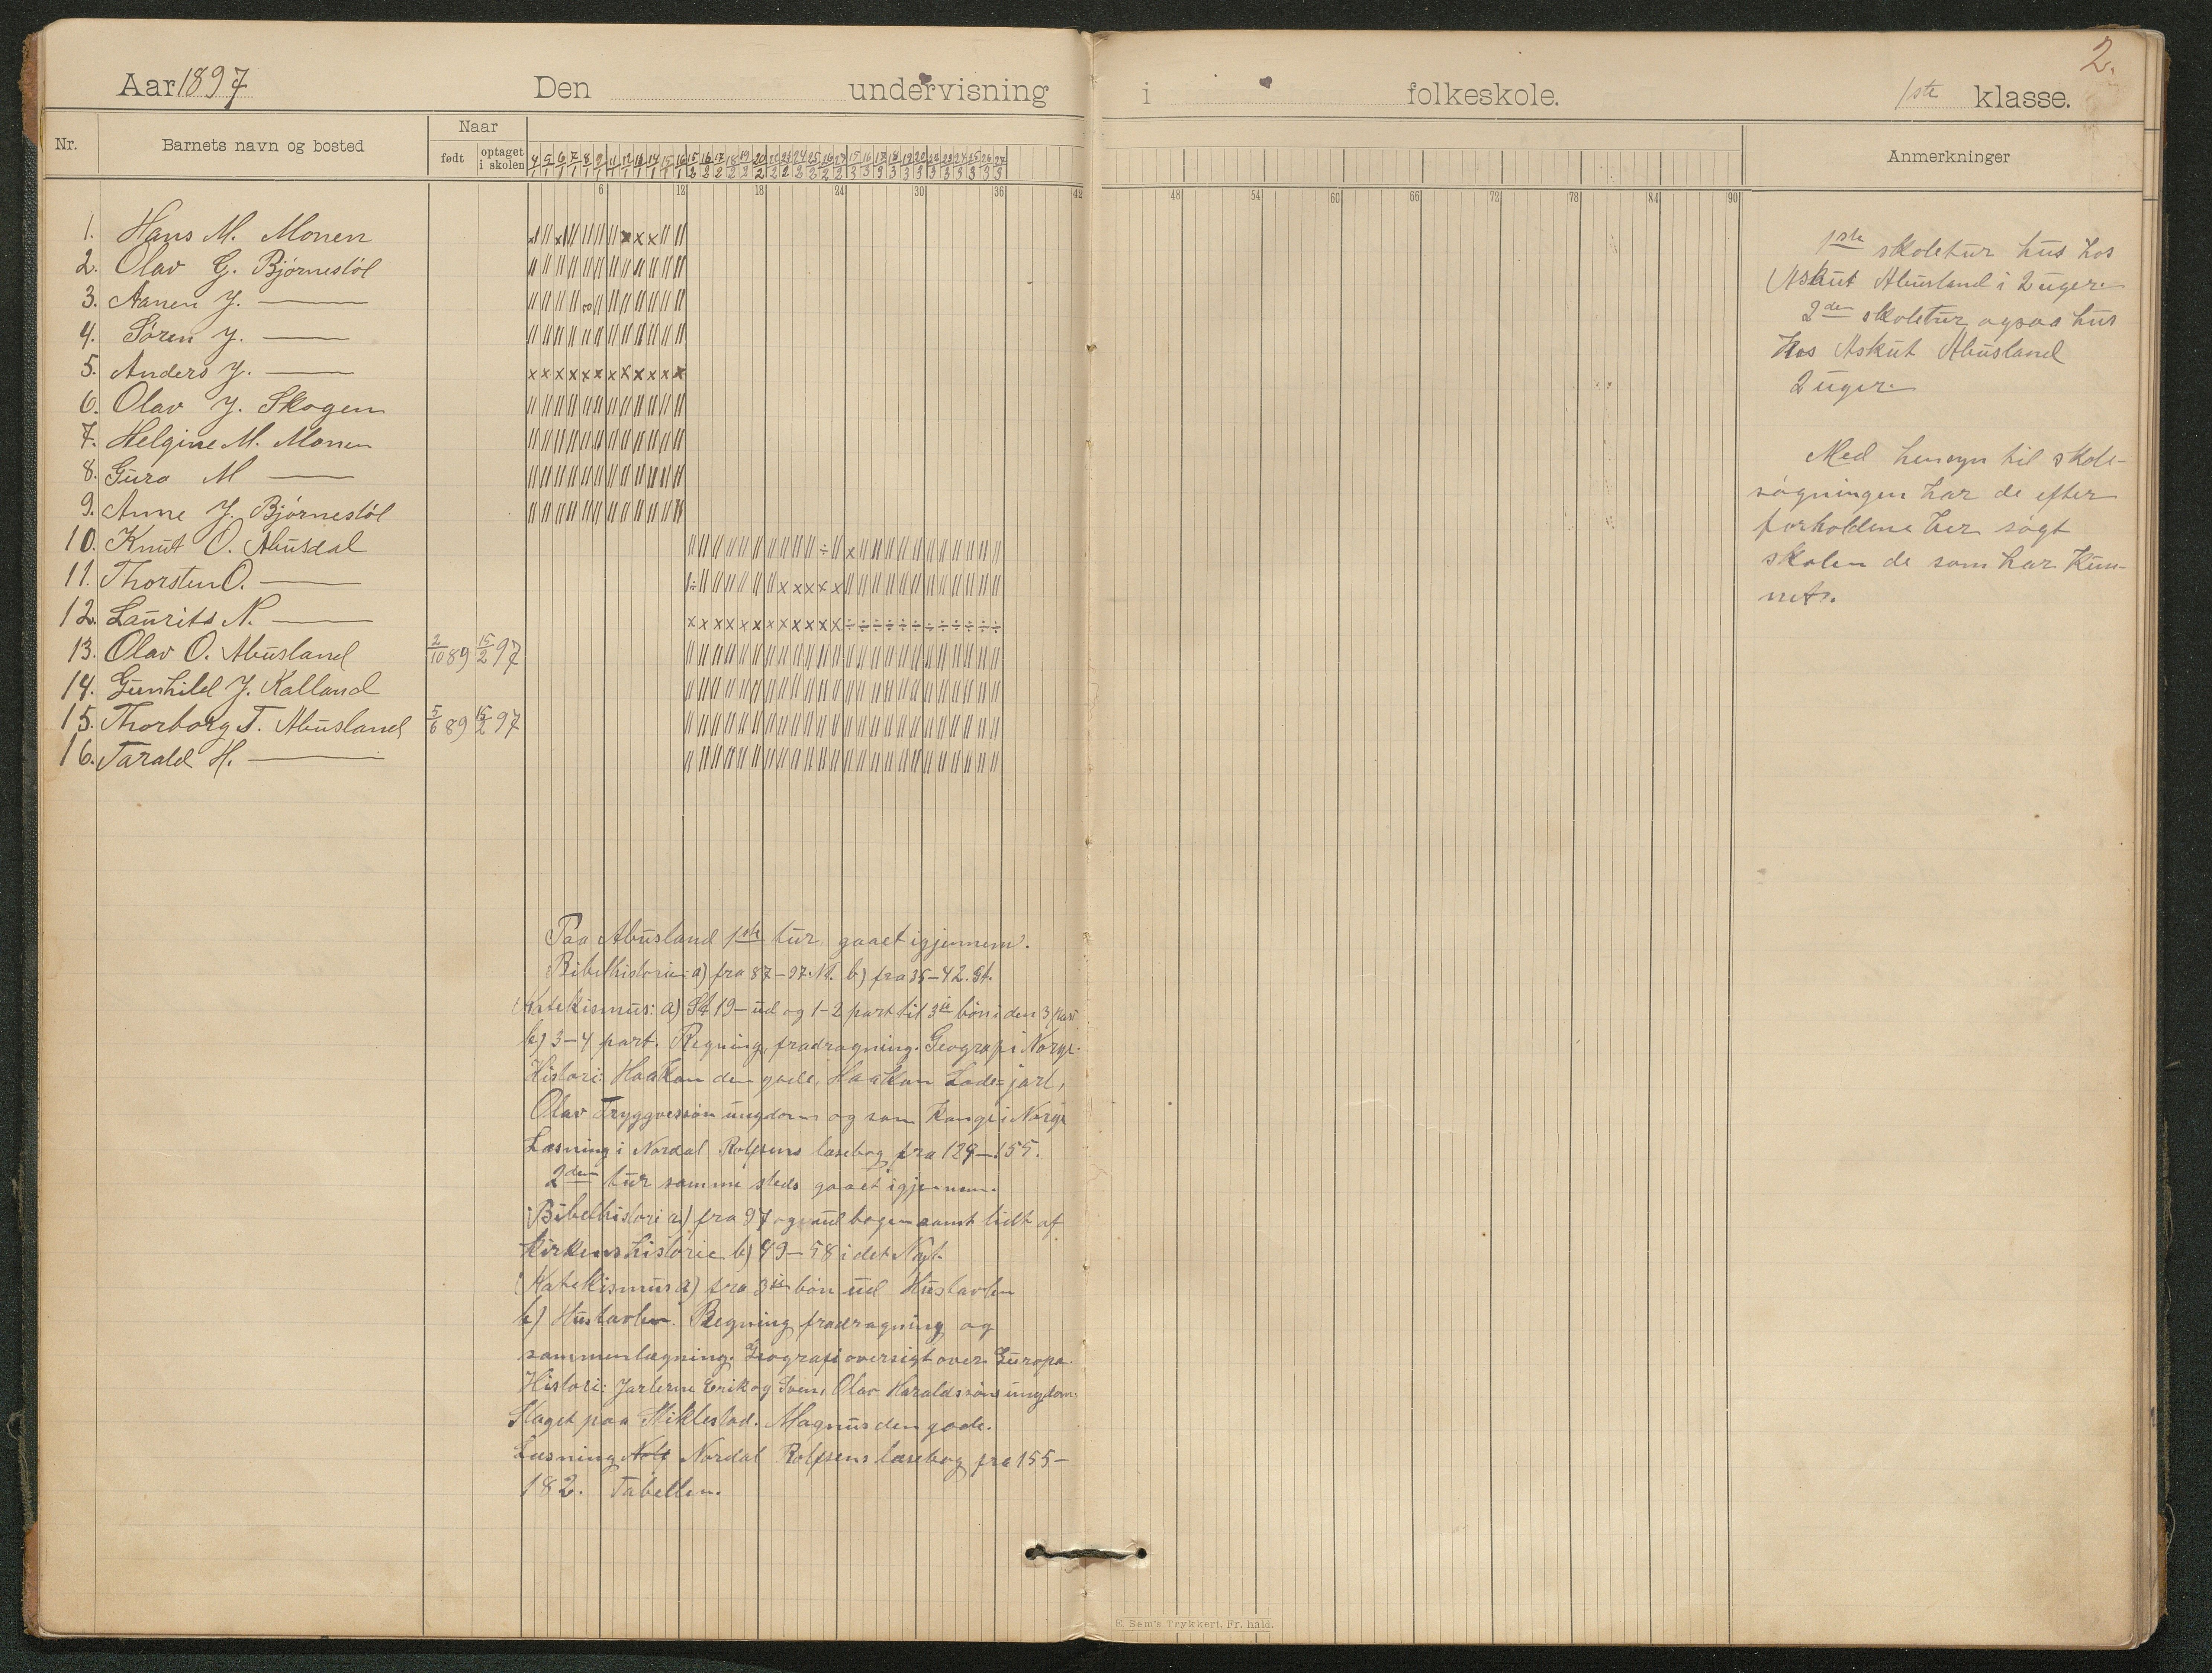 2.
Aar 1897 Den undervisning i folkeskole. 1ste klasse.
Nr. Barnets navn og bosted Naar født optaget i skolen Anmerkninger
6 12 18 24 30 36 42 48 54 60 66 72 78 84 90
1. Hans M. Monen
2. Olav G. Bjørnestöl
3. Aanen J. —
4. Sören J. —
5. Anders J. —
6. Olav J. Skogen
7. Helgine M. Monen
8. Guro M —
9. Anne J. Bjørnestöl
10. Knut O. Abusdal
11. Thorsten O. —
12. Laurits N. —
13. Olav O. Abusland 2/10 89 15/2 97
14. Gunhild J. Kalland
15. Thorborg T. Abusland 5/6 89 15/2 97
16. Tarald H. —
1ste skoletur hus hos
Askut Abusland i 2 uger.
2den skoletur ogsaa hus
hos Askut Abusland
2 uger.
Med hensyn til skole-
søgningen har de efter
forholdene her søgt
skolen de som har kun-
net.
Paa Abusland 1ste tur gaaet igjennem.
Bibelhistorie: a) fra 87–97. St. b) fra 35–42. St.
Katekismus: a) St 19 – ud og 1–2 part til 3die bön i den 3 part
b) 3–4 part. Regning, fradragning. Geografi Norge.
Histori: Haakon den gode, Haakon Lade-jarl,
Olav Tryggvessön ungdom og som konge i Norge
Læsning i Nordal Rolfsens læsebog fra 129–155.
2den tur samme steds gaaet igjennem.
Bibelhistori a) fra 97 og ud bogen samt lidt af
kirkens historie b) 49–58 i det Nyt.
Katekismus a) fra 3die bön ud Hustavlen
b) Hustavlen. Regning fradragning og
sammenlægning. Geografi oversigt over Europa.
Histori: Jarlerne Erik og Svein, Olav Haraldssöns ungdom.
Slaget paa Stiklestad. Magnus den gode.
Læsning Nordal Rolfsens læsebog fra 155–
182. Tabellen.
E. Sem's Trykkeri, Fr. hald.